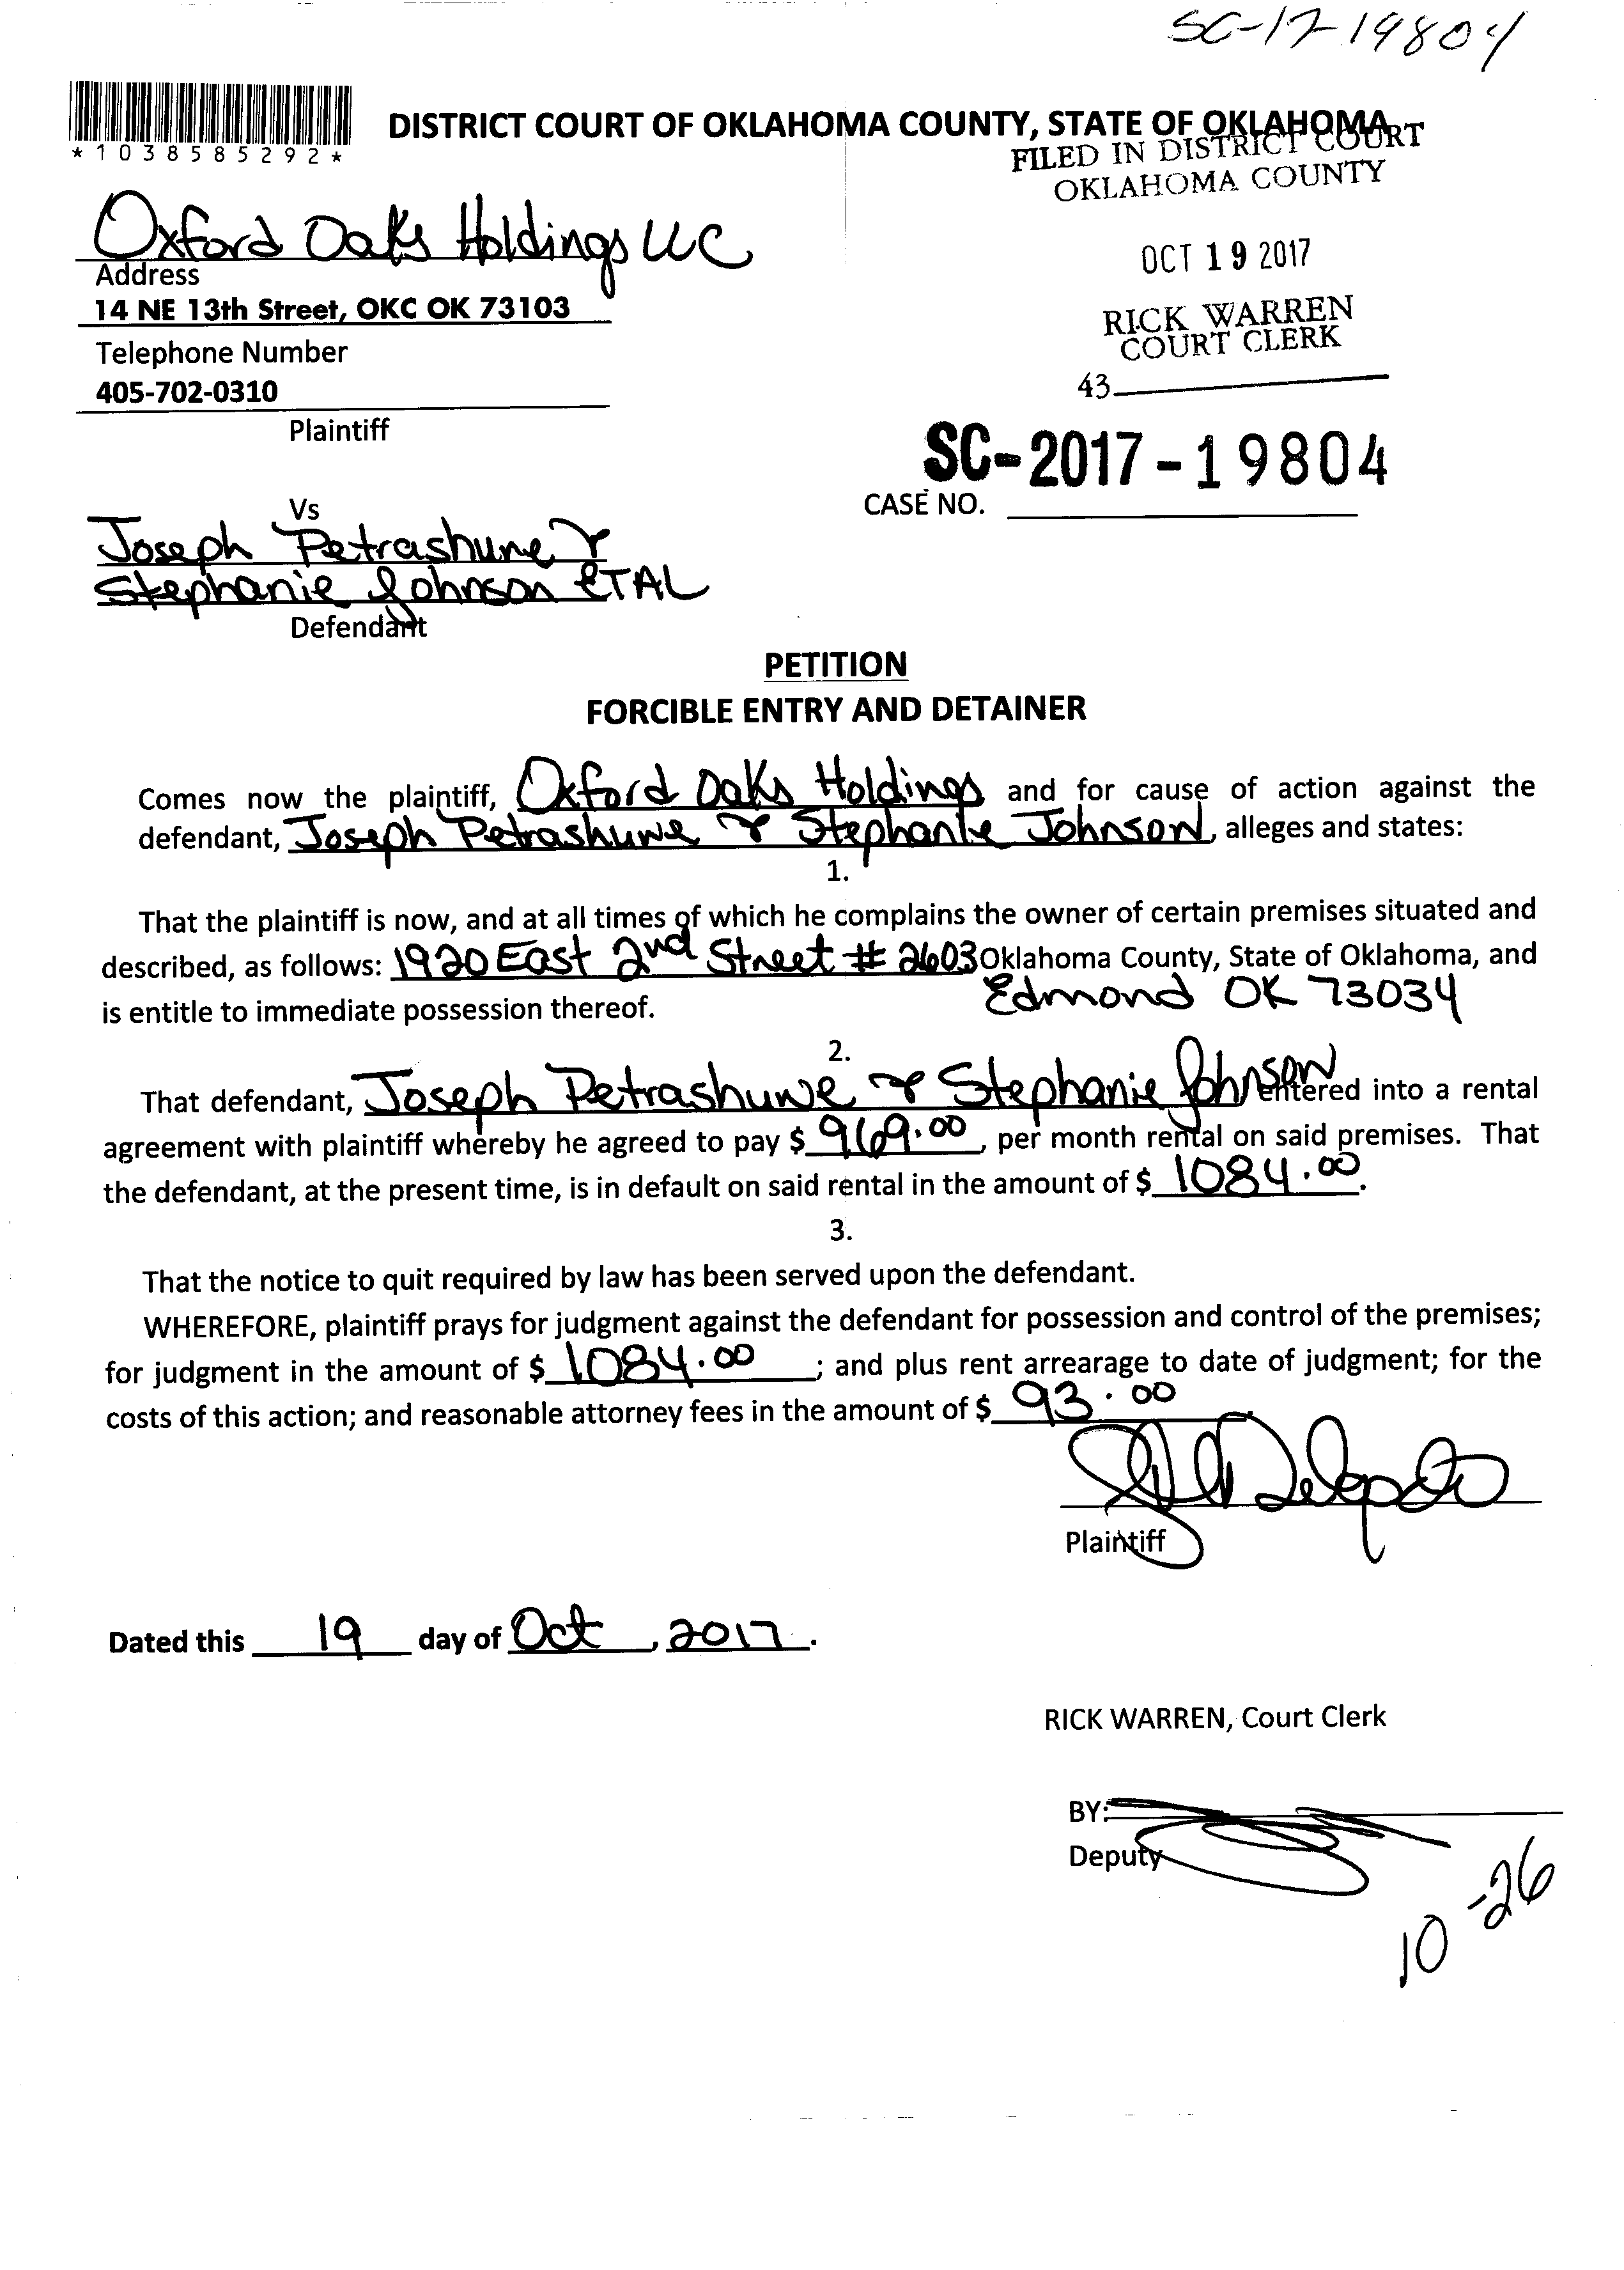 SC-17-19804
*1038585292*
DISTRICT COURT OF OKLAHOMA COUNTY, STATE OF OKLAHOMA
FILED IN DISTRICT COURT
OKLAHOMA COUNTY
Oxford Oaks Holdings LLC
Address
14 NE 13th Street, OKC OK 73103
Telephone Number
405-702-0310
Plaintiff
OCT 19 2017
RICK WARREN
COURT CLERK
43
SC-2017-19804
CASE NO.
Vs
Joseph Petrashune &
Stephanie Johnson ETAL
Defendant
PETITION
FORCIBLE ENTRY AND DETAINER
Comes now the plaintiff, Oxford Oaks Holdings and for cause of action against the
defendant, Joseph Petrashune & Stephanie Johnson, alleges and states:
1.
That the plaintiff is now, and at all times of which he complains the owner of certain premises situated and
described, as follows: 1920 East 2nd Street # 2603 Oklahoma County, State of Oklahoma, and
is entitle to immediate possession thereof. Edmond OK 73034
2.
That defendant, Joseph Petrashune & Stephanie Johnson entered into a rental
agreement with plaintiff whereby he agreed to pay $ 969.00, per month rental on said premises. That
the defendant, at the present time, is in default on said rental in the amount of $ 1084.00.
3.
That the notice to quit required by law has been served upon the defendant.
WHEREFORE, plaintiff prays for judgment against the defendant for possession and control of the premises;
for judgment in the amount of $ 1084.00; and plus rent arrearage to date of judgment; for the
costs of this action; and reasonable attorney fees in the amount of $ 93.00
Delgado
Plaintiff
Dated this 19 day of Oct, 2017.
RICK WARREN, Court Clerk
BY:
Deputy
10-26